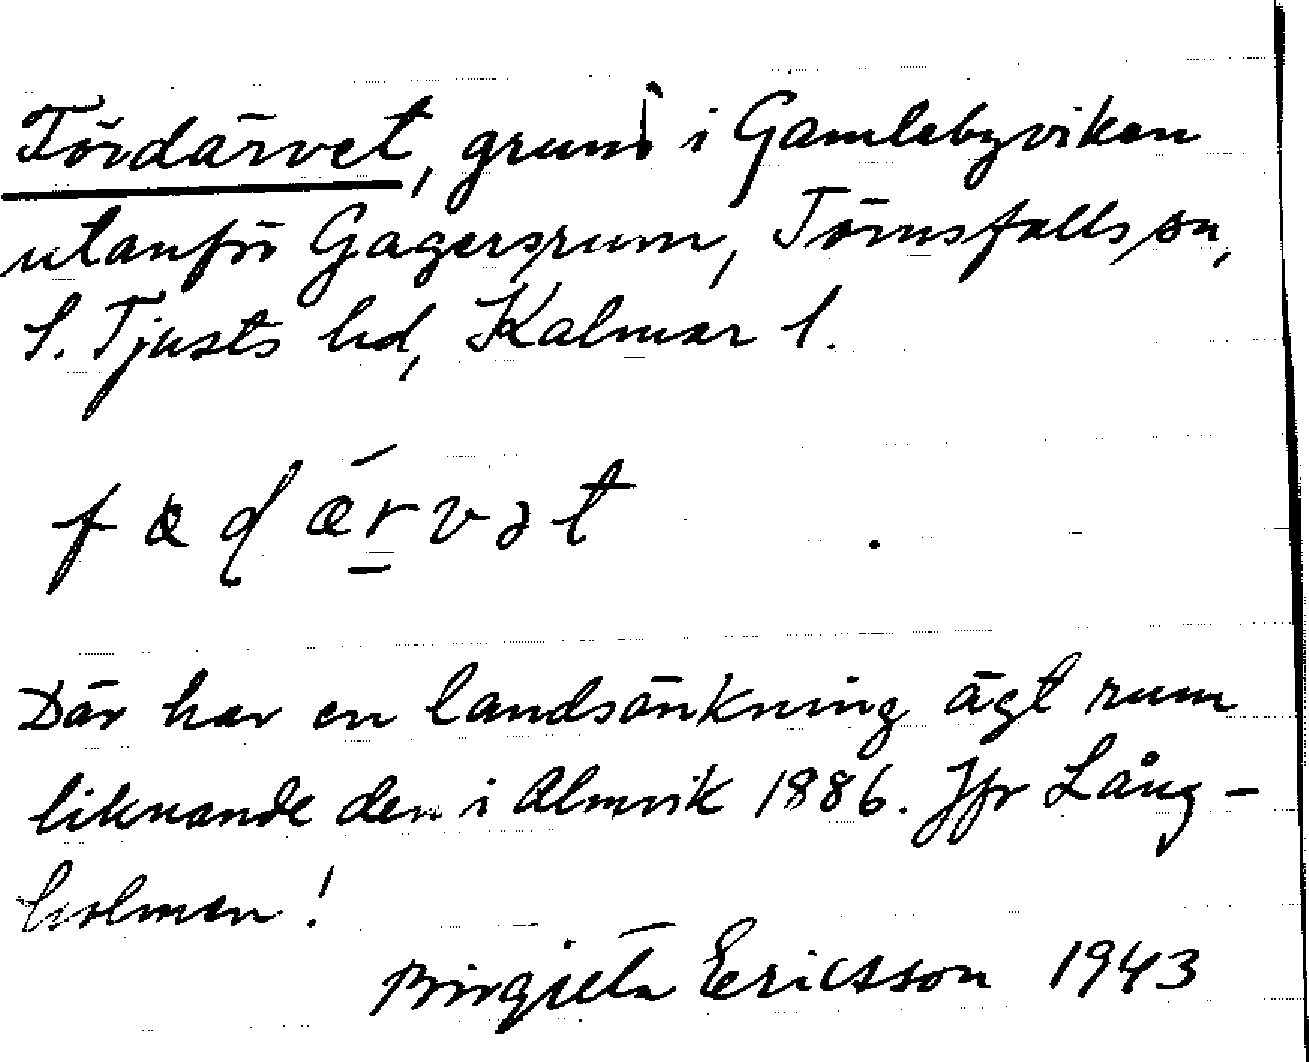 Fördärvet, grund i Gamlebyviken
utanför Gagersrum, Törnsfalls sn,
S. Tjusts hd, Kalmar l.
fædǽrvət
Där har en landsänkning ägt rum
liknande den i Almvik 1886. Jfr Lång-
holmen!
Birgitta Ericsson 1943